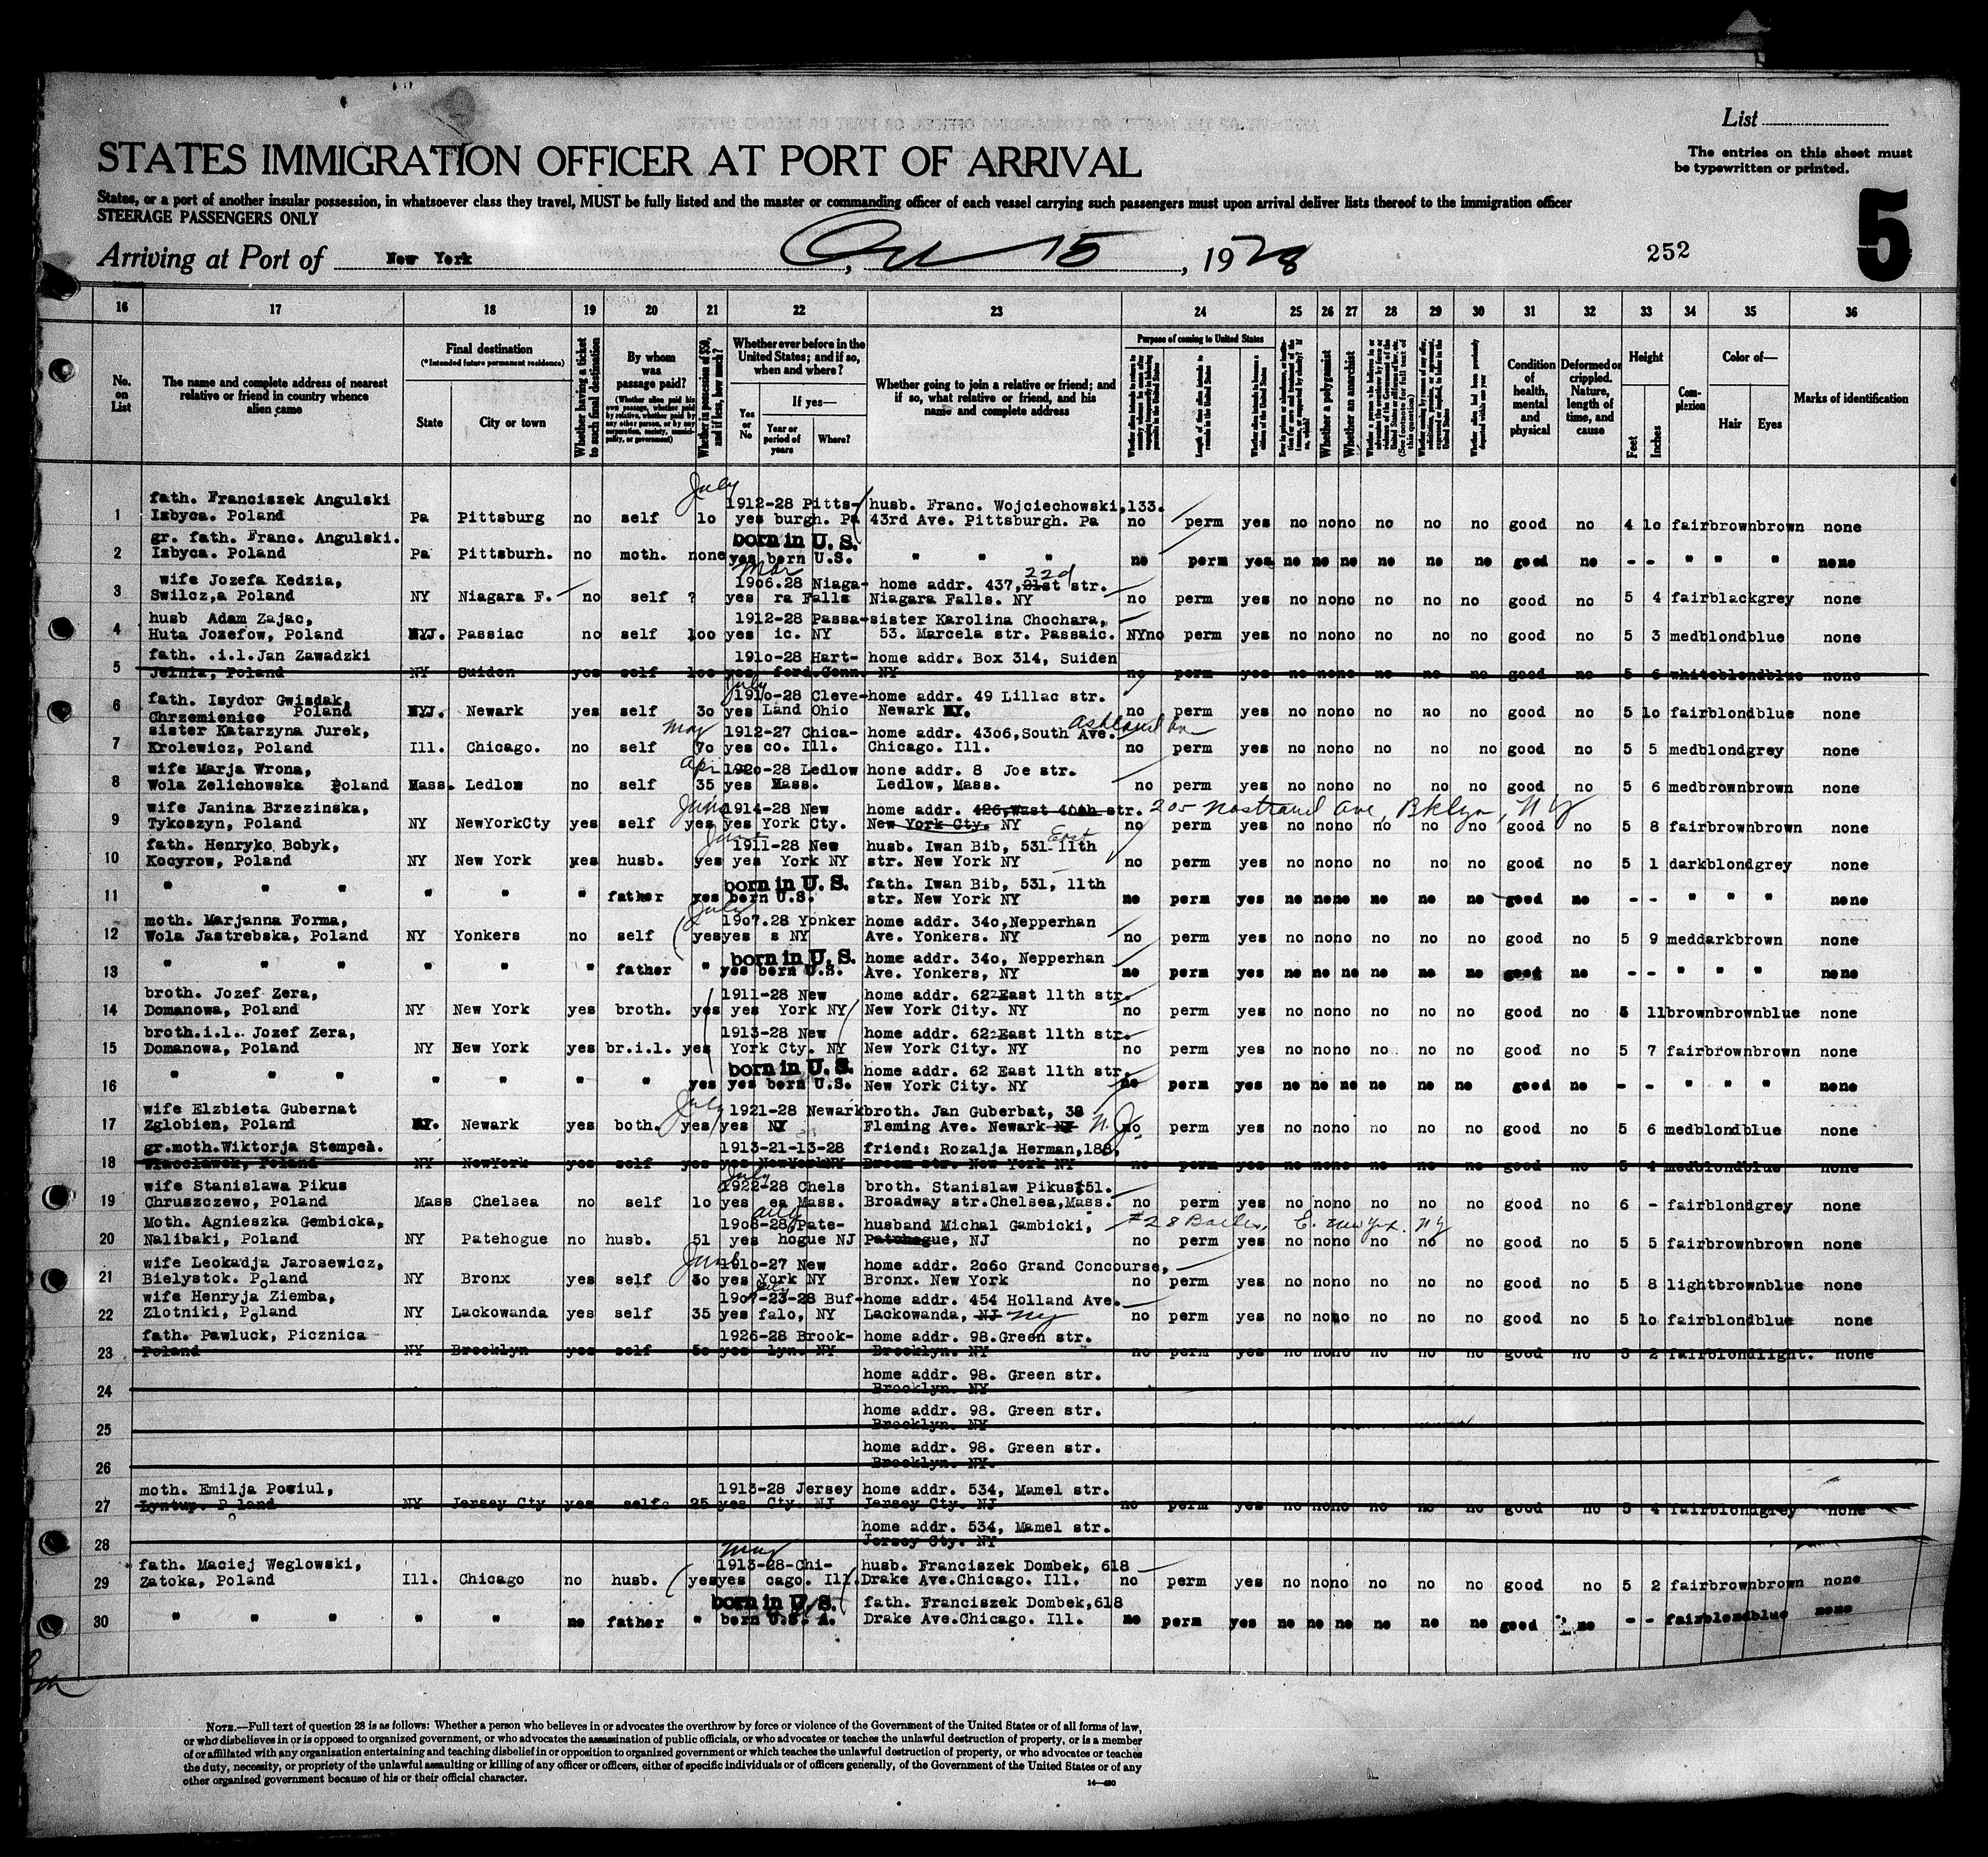 List
The entries on this sheet must
be typewritten or printed.
STATES IMMIGRATION OFFICER AT PORT OF ARRIVAL
5
States, or a port of another insular possession, in whatsoever class they travel, MUST be fully listed and the master or commanding officer of each vessel carrying such passengers must upon arrival deliver lists thereof to the immigration officer
STEERAGE PASSENGERS ONLY
Arriving at Port of New York, 15, 1928
252
16 17 18 19 20 21 22 23 24 25 26 27 28 29 30 31 32 33 34 35 36
No. on List
The name and complete address of nearest relative or friend in country whence alien came
Final destination
(*Intended future permanent residence)
State
City or town
Whether having a ticket to such final destination
By whom was passage paid?
(Whether alien paid his own passage, whether paid by relative, whether paid by any other person, or by any corporation, society, municipality, or government)
Whether in possession of $50, and if less, how much?
Whether ever before in the United States; and if so, when and where?
Yes or No
If yes—
Year or period of years
Where?
Whether going to join a relative or friend; and if so, what relative or friend, and his name and complete address
Purpose of coming to United States
Length of time alien intends to remain in the United States
Whether a polygamist
Whether an anarchist
Condition of health, mental and physical
Deformed or crippled. Nature, length of time, and cause
Height
Feet
Inches
Complexion
Color of—
Hair
Eyes
Marks of identification
July
fath. Franciszek Angulski 1912-28 Pitts- husb. Franc. Wojciechowski,133.
1 Izbyca. Poland Pa Pittsburg no self 1o yes burgh. Pa 43rd Ave. Pittsburgh. Pa no perm yes no no no no no no good no 4 1o fair brown brown none
gr. fath. Franc. Angulski. born in U. S.
2 Izbyca. Poland Pa Pittsburh. no moth. none yes born U.S. " " " no perm yes no no no no no no good no - - " " " none
Mar 22d
wife Jozefa Kedzia, 1906.28 Niaga- home addr. 437, 21st str.
3 Swilcz,a Poland NY Niagara F. no self ? yes ra Falls Niagara Falls. NY no perm yes no no no no no no good no 5 4 fair black grey none
husb Adam Zajac, 1912-28 Passa- sister Karolina Chochara,
4 Huta Jozefow, Poland NYJ. Passiac no self 1oo yes ic. NY 53. Marcela str. Passaic. NY no perm yes no no no no no no good no 5 3 med blond blue none
fath. .i.l.Jan Zawadzki 1910-28 Hart- home addr. Box 314, Suiden
5 Jelnia, Poland NY Suiden yes self 1oo yes ford.Conn. NY no perm yes no no no no no no good no 5 6 white blond blue none
July
fath. Isydor Gwisdak, 1910-28 Cleve- home addr. 49 Lillac str.
6 Chrzemienice Poland NYJ. Newark yes self 3o yes Land Ohio Newark NY. no perm yes no no no no no no good no 5 1o fair blond blue none
May Ashland Av
sister Katarzyna Jurek, 1912-27 Chica- home addr. 43o6,South Ave.
7 Krolewicz, Poland Ill. Chicago. no self 7o yes co. Ill. Chicago. Ill. no perm yes no no no no no no good no 5 5 med blond grey none
Apr
wife Marja Wrona, 1920-28 Ledlow hone addr. 8 Joe str.
8 Wola Zelichowska Poland Mass. Ledlow no self 35 yes Mass. Ledlow, Mass. no perm yes no no no no no no good no 5 6 med brown brown none
June
wife Janina Brzezinska, 1914-28 New home addr. 426,West 40th str. 205 Nostrand Ave, Bklyn, N Y
9 Tykoszyn, Poland NY NewYorkCty yes self yes yes York Cty. New York Cty. NY no perm yes no no no no no no good no 5 8 fair brown brown none
June East
fath. Henryko Bobyk, 1911-28 New husb. Iwan Bib, 531 11th
10 Kocyrow, Poland NY New York yes husb. yes yes York NY str. New York NY no perm yes no no no no no no good no 5 1 dark blond grey none
born in U. S. fath. Iwan Bib, 531, 11th
11 " " " " " " father yes born U.S. str. New York NY no perm yes no no no no no no good no - - " " " none
July
moth. Marjanna Forma, 1907.28 Yonker home addr. 34o,Nepperhan
12 Wola Jastrebska, Poland NY Yonkers no self yes yes s NY Ave. Yonkers. NY no perm yes no no no no no no good no 5 9 med dark brown none
born in U. S. home addr. 34o, Nepperhan
13 " " " " " " father " yes born U.S. Ave. Yonkers, NY no perm yes no no no no no no good no - - " " " none
broth. Jozef Zera, 1911-28 New home addr. 622East 11th str.
14 Domanowa, Poland NY New York yes broth. yes yes York NY New York City. NY no perm yes no no no no no no good no 5 11 brown brown blue none
broth.i.l. Jozef Zera, 1913-28 New home addr. 622East 11th str.
15 Domanowa, Poland NY New York yes br.i.l. yes York Cty. NY New York City. NY no perm yes no no no no no no good no 5 7 fair brown brown none
born in U. S. home addr. 62 East 11th str.
16 " " " " " " " yes yes born U.S. New York City. NY no perm yes no no no no no no good no - - " " " none
July
wife Elzbieta Gubernat 1921-28 Newark broth. Jan Guberbat, 38
17 Zglobien, Poland NY. Newark yes both. yes yes NY Fleming Ave. Newark NY N.J. no perm yes no no no no no no good no 5 6 med blond blue none
gr.moth.Wiktorja Stempel. 1913-21-13-28 friend: Rozalja Herman,188,
18 Wloclawek, Poland NY NewYork yes self yes yes NewYorkNY Broom str. New York NY no perm yes no no no no no no good no 5 4 med blond blue none
July
wife Stanislawa Pikus 1922-28 Chels broth. Stanislaw Pikus151.
19 Chruszczewo, Poland Mass Chelsea no self 1o yes ea Mass. Broadway str.Chelsea,Mass. no perm yes no no no no no no good no 6 - fair blond grey none
Moth. Agnieszka Gembicka, 1908-28 Pate- husband Michal Gambicki, #28 E. N Y
20 Nalibaki, Poland NY Patehogue no husb. 51 yes hogue NJ Patchogue, NJ no perm yes no no no no no no good no 5 5 fair brown brown none
June
wife Leokadja Jarosewicz, 1910-27 New home addr. 2o6o Grand Concourse,
21 Bielystok. Poland NY Bronx yes self 3o yes York NY Bronx. New York no perm yes no no no no no no good no 5 8 light brown blue none
wife Henryja Ziemba, 1907-23-28 Buf- home addr. 454 Holland Ave.
22 Zlotniki, Poland NY Lackowanda yes self 35 yes falo, NY Lackowanda, NJ NY no perm yes no no no no no no good no 5 1o fair blond blue none
fath. Pawluck, Picznica 1926-28 Brook- home addr. 98.Green str.
23 Poland NY Brooklyn yes self 5o yes lyn. NY Brooklyn. NY no perm yes no no no no no no good no 5 2 fair blond light. none
home addr. 98. Green str.
24 Brooklyn. NY
home addr. 98. Green str.
25 Brooklyn. NY
home addr. 98. Green str.
26 Brooklyn. NY.
moth. Emilja Posiul, 1913-28 Jersey home addr. 534, Mamel str.
27 Lyntup. Poland NY Jersey Cty yes self. 25 yes Cty. NJ Jersey Cty. NJ no perm yes no no no no no no good no 5 4 fair blond grey none
home addr. 534, Mamel str.
28 Jersey Cty. NY
May
fath. Maciej Weglowski, 1913-28-Chi- husb. Franciszek Dombek, 618
29 Zatoka, Poland Ill. Chicago no husb. yes yes cago. Ill. Drake Ave.Chicago. Ill. no perm yes no no no no no no good no 5 2 fair brown brown none
born in U. S. fath. Franciszek Dombek,618
30 " " " " " no father " born U.S. A. Drake Ave.Chicago. Ill. no perm yes no no no no no no good no - - fair blond blue none
NOTE.—Full text of question 28 is as follows: Whether a person who believes in or advocates the overthrow by force or violence of the Government of the United States or of all forms of law,
or who disbelieves in or is opposed to organized government, or who advocates the assassination of public officials, or who advocates or teaches the unlawful destruction of property, or is a member
of or affiliated with any organization entertaining and teaching disbelief in or opposition to organized government or which teaches the unlawful destruction of property, or who advocates or teaches
the duty, necessity, or propriety of the unlawful assaulting or killing of any officer or officers, either of specific individuals or of officers generally, of the Government of the United States or of any
other organized government because of his or their official character.
14—430